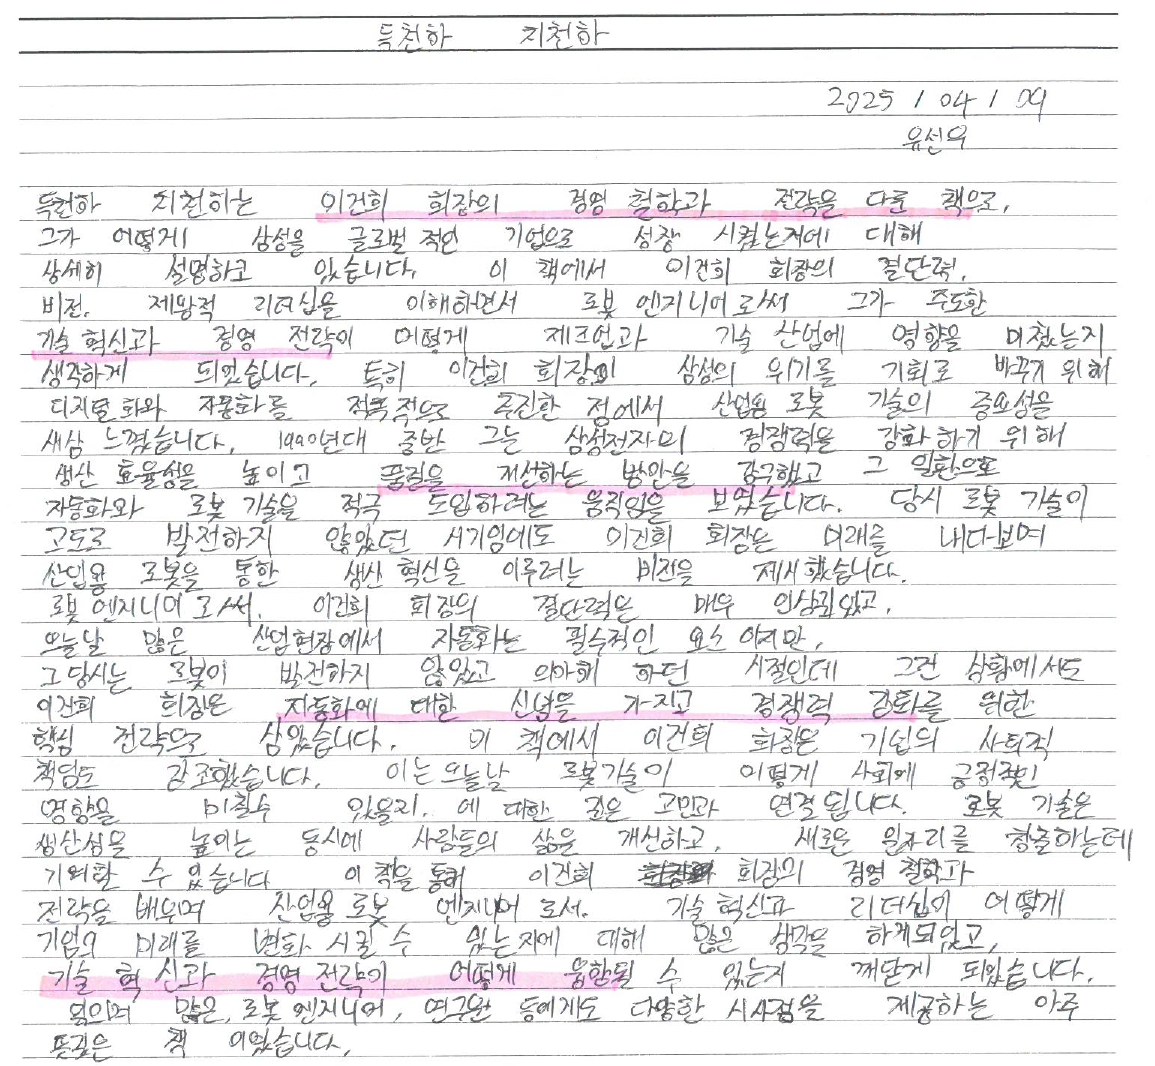 득천하 치천하
2025 / 04 / 09
유선우
득천하 치천하는 이건희 회장의 경영 철학과 전략을 다룬 책으로,
그가 어떻게 삼성을 글로벌 적인 기업으로 성장 시켰는지에 대해
상세히 설명하고 있습니다. 이 책에서 이건희 회장의 결단력,
비전, 제왕적 리더십을 이해하면서 로봇 엔지니어로써 그가 주도한
기술 혁신과 경영 전략이 어떻게 제조업과 기술 산업에 영향을 미쳤는지
생각하게 되었습니다. 특히 이건희 회장이 삼성의 위기를 기회로 바꾸기 위해
디지털화와 자동화를 적극적으로 추진한 점에서 산업용 로봇 기술의 중요성을
새삼 느꼈습니다. 1990년대 중반 그는 삼성전자의 경쟁력을 강화하기 위해
생산 효율성을 높이고 품질을 개선하는 방안을 강구했고 그 일환으로
자동화와 로봇 기술을 적극 도입하려는 움직임을 보였습니다. 당시 로봇 기술이
고도로 발전하지 않았던 시기임에도 이건희 회장은 미래를 내다보며
산업용 로봇을 통한 생산 혁신을 이루려는 비전을 제시했습니다.
로봇 엔지니어로써, 이건희 회장의 결단력은 매우 인상깊었고,
오늘날 많은 산업현장에서 자동화는 필수적인 요소 이지만,
그 당시는 로봇이 발전하지 않았고 의아해 하던 시절인데 그런 상황에서도
이건희 회장은 자동화에 대한 신념을 가지고 경쟁력 강화를 위한
핵심 전략으로 삼았습니다. 이 책에서 이건희 회장은 기업의 사회적
책임도 강조했습니다. 이는 오늘날 로봇기술이 어떻게 사회에 긍정적인
영향을 미칠수 있을지. 에 대한 깊은 고민과 연결됩니다. 로봇 기술은
생산성을 높이는 동시에 사람들의 삶을 개선하고, 새로운 일자리를 창출하는데
기여할 수 있습니다 이 책을 통해 이건희 회장의 경영 철학과
전략을 배우며 산업용 로봇 엔지니어 로서. 기술 혁신과 리더십이 어떻게
기업의 미래를 변화 시킬 수 있는지에 대해 많은 생각을 하게되었고,
기술 혁신과 경영 전략이 어떻게 융합될 수 있는지 깨닫게 되었습니다.
읽으며 많은, 로봇 엔지니어, 연구원 등에게도 다양한 시사점을 제공하는 아주
뜻깊은 책 이었습니다.